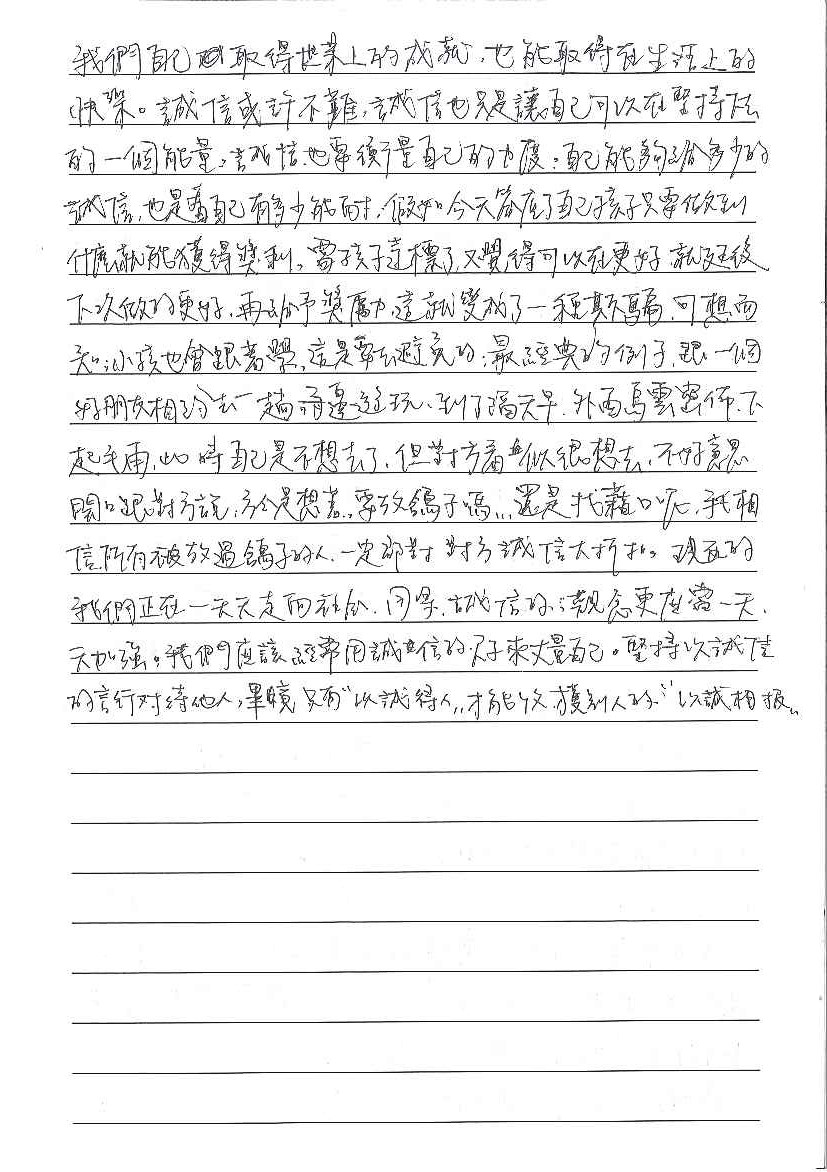 我們自己取得世業上的成就，也能取得在生活上的
快樂。誠信或許不難，誠信也只是讓自己可以在堅持下去
的一個能量，誠信也要衡量自己的力度，自己能夠給多少的
誠信，也是看自己有多少能耐，假如今天答應了自己孩子只要做到
什麼就能獲得獎利，當孩子達標了，又覺得可以在更好，就延後
下次做的更好，再給予獎勵，這就變成了一種欺騙，可想而
知，小孩也會跟著學，這是要去避免的，最經典的例子，跟一個
好朋友相約去一趟海邊遊玩，到了隔天早，外面烏雲密佈，下
起毛雨，此時自己是不想去了，但對方看似很想去，不好意思
開口跟對方說，於是想著，要放鴿子嗎，還是找藉口呢，我相
信所有被放過鴿子的人，一定都對對方誠信大打折扣。現在的
我們正在一天天走向社會，同學，誠信的觀念更應當一天
天加強。我們應該經常用誠信的尺子來丈量自己。堅持以誠信
的言行对待他人，畢竟只有"以誠得人"，才能收獲別人的"以誠相报"。